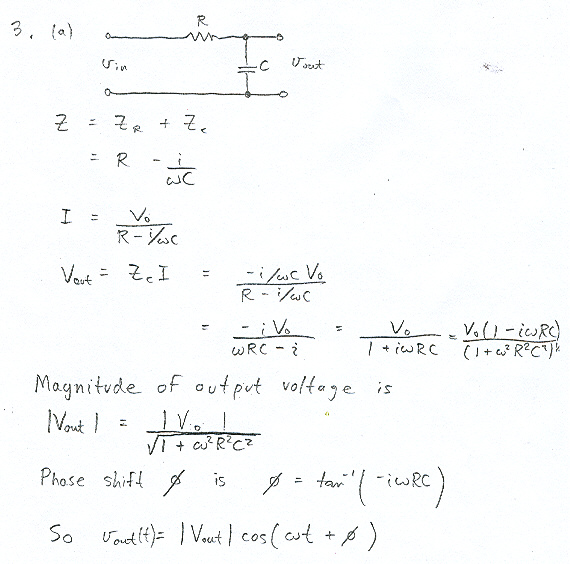 3. (a) R
Vin C Vout
Z = Z_R + Z_c
= R - i/ωC
I = V₀/(R - i/ωC)
Vout = Z_c I = (-i/ωC V₀)/(R - i/ωC)
= -iV₀/(ωRC - i) = V₀/(1 + iωRC) = V₀(1 - iωRC)/(1 + ω²R²C²)
Magnitude of output voltage is
|Vout| = |V₀|/√(1 + ω²R²C²)
Phase shift ϕ is ϕ = tan⁻¹(-iωRC)
So vout(t) = |Vout| cos(ωt + ϕ)